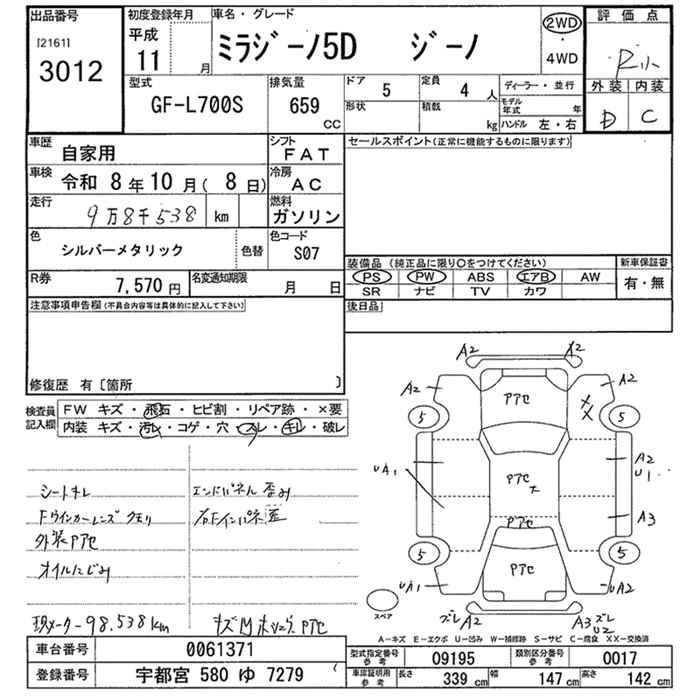 出品番号
[2161]
3012
初度登録年月
平成
11 月
車名・グレード
ミラジーノ5D ジーノ
2WD
・
4WD
評価点
外装 内装
D C
型式
GF-L700S
排気量
659
CC
ドア
5
定員
4 人
形状
積載
kg
ディーラー・並行
モデル年式 年
ハンドル 左・右
車歴
自家用
シフト
FAT
車検
令和 8年10月( 8日)
冷房
AC
走行
9万8千538 km
燃料
ガソリン
色
シルバーメタリック
色替
色コード
S07
R券
7,570円
名変通知期限
月 日
セールスポイント(正常に機能するものに限ります)
装備品(純正品に限り〇をつけてください)
PS PW ABS エアB AW
SR ナビ TV カワ
新車保証書
有・無
後日品
注意事項申告欄(不具合内容等は具体的に記入して下さい)
修復歴 有〔箇所 〕
検査員記入欄
FW キズ・飛石・ヒビ割・リペア跡・×要
内装 キズ・汚レ・コゲ・穴・スレ・キレ・破レ
シートキレ
Fウインカーレンズクモリ
外装Pアセ
オイルにじみ
エンドパネル歪み
右Fインパネ歪
現メーター98.538km
A2 X2
A2 A2
Pアセ
X
X
5 5
UA1
Pアセ
A2
U1
Pアセ
A3
5 5
Pアセ
UA1 UA2
スペア
ズレ A2
A3 ズレ
U2
A-キズ E-エクボ U-凹み W-補修跡 S-サビ C-腐食 XX-交換済
車台番号
0061371
登録番号
宇都宮 580 ゆ 7279
型式指定番号
参考
09195
類別区分番号
参考
0017
車庫証明用
参考
長さ
339 cm
幅
147 cm
高さ
142 cm